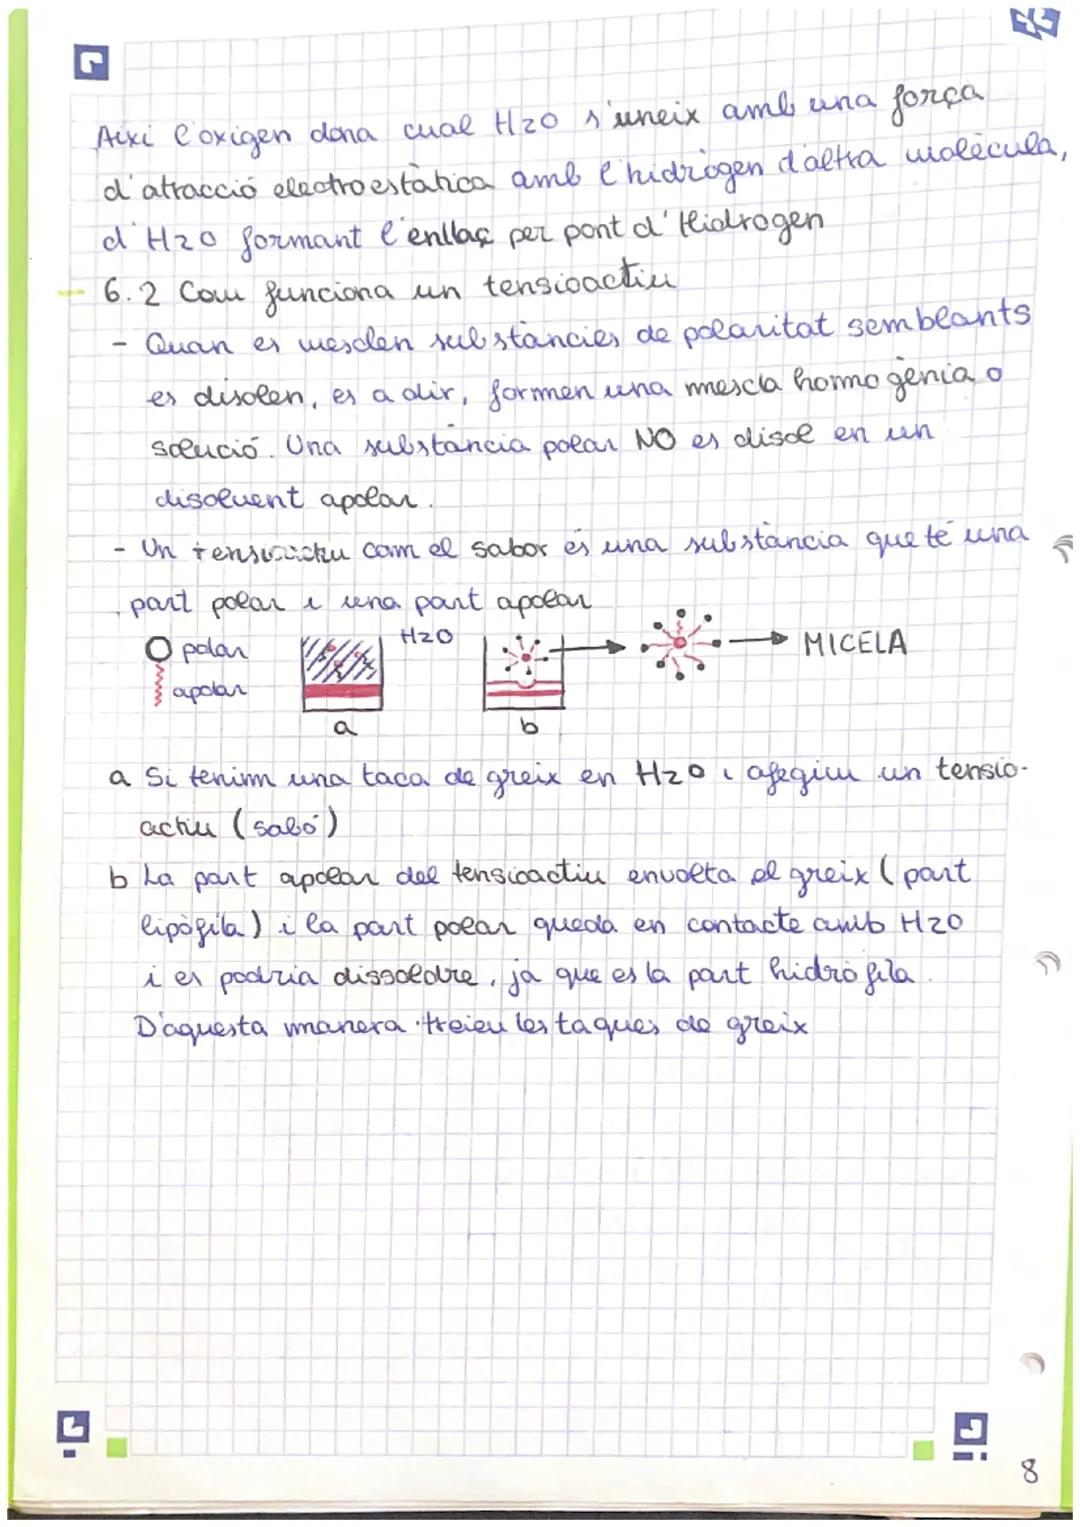 Aixi l'oxigen dona cual H2O s'uneix amb una força
d'atracció electroestàtica amb l'hidrògen d'altra molècula,
d'H2O formant l'enllaç per pont d'Hidrogen
6.2 Com funciona un tensioactiu
- Quan es mesclen substàncies de polaritat semblants
es disolen, es a dir, formen una mescla homogènia o
solució. Una substància polar NO es disol en un
disolvent apolar.
- Un tensioactiu com el sabor és una substància que té una
part polar i una part apolar
polar
apolar
H2O
MICELA
a
b
a Si tenim una taca de greix en H2O i afegim un tensio-
actiu (sabó)
b La part apolar del tensioactiu envolta el greix (part
lipòfila) i la part polar queda en contacte amb H2O
i es podria dissoldre, ja que es la part hidròfila.
D'aquesta manera treieu les taques de greix
8